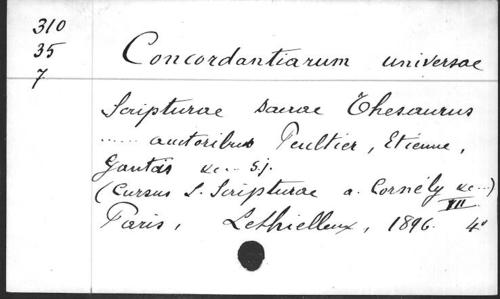 310
35
7
Concordantiarum universae
Scripturae sacrae Thesaurus
...... auctoribus Peultier, Etienne,
Gantois &c... S.j.
(Cursus S. Scripturae a. Cornély &c...)
VII
Paris, Lethielleux, 1896. 4°